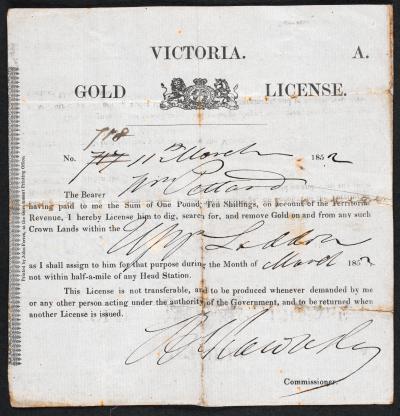 VICTORIA. A.
GOLD LICENSE.
718
No. 717 11th March 1852
The Bearer Wm Pettard
having paid to me the Sum of One Pound, Ten Shillings, on account of the Territorial
Revenue, I hereby License him to dig, search for, and remove Gold on and from any such
Crown Lands within the Upper Loddon
as I shall assign to him for that purpose during the Month of March 1852
not within half-a-mile of any Head Station.
This License is not transferable, and to be produced whenever demanded by me
or any other person acting under the authority of the Government, and to be returned when
another License is issued.
Commissioner.
Printed by John Ferres, at the Government Printing Office.